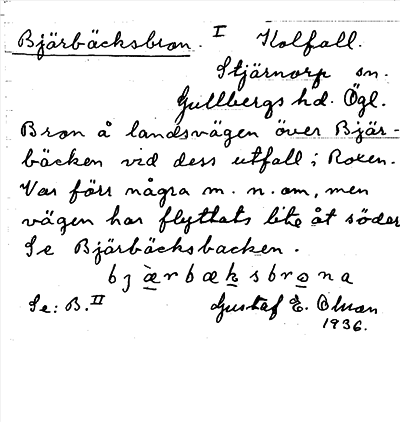 Bjärbäcksbron. I Kolfall.
Stjärnorp sn.
Gullbergs hd. Ögl.
Bron å landsvägen över Bjär-
bäcken vid dess utfall i Roxen.
Var förr några m. n. om, men
vägen har flyttats lite åt söder
Se Bjärbäcksbacken.
bjærbæksbrona
Se: B. II Gustaf E. Olson
1936.